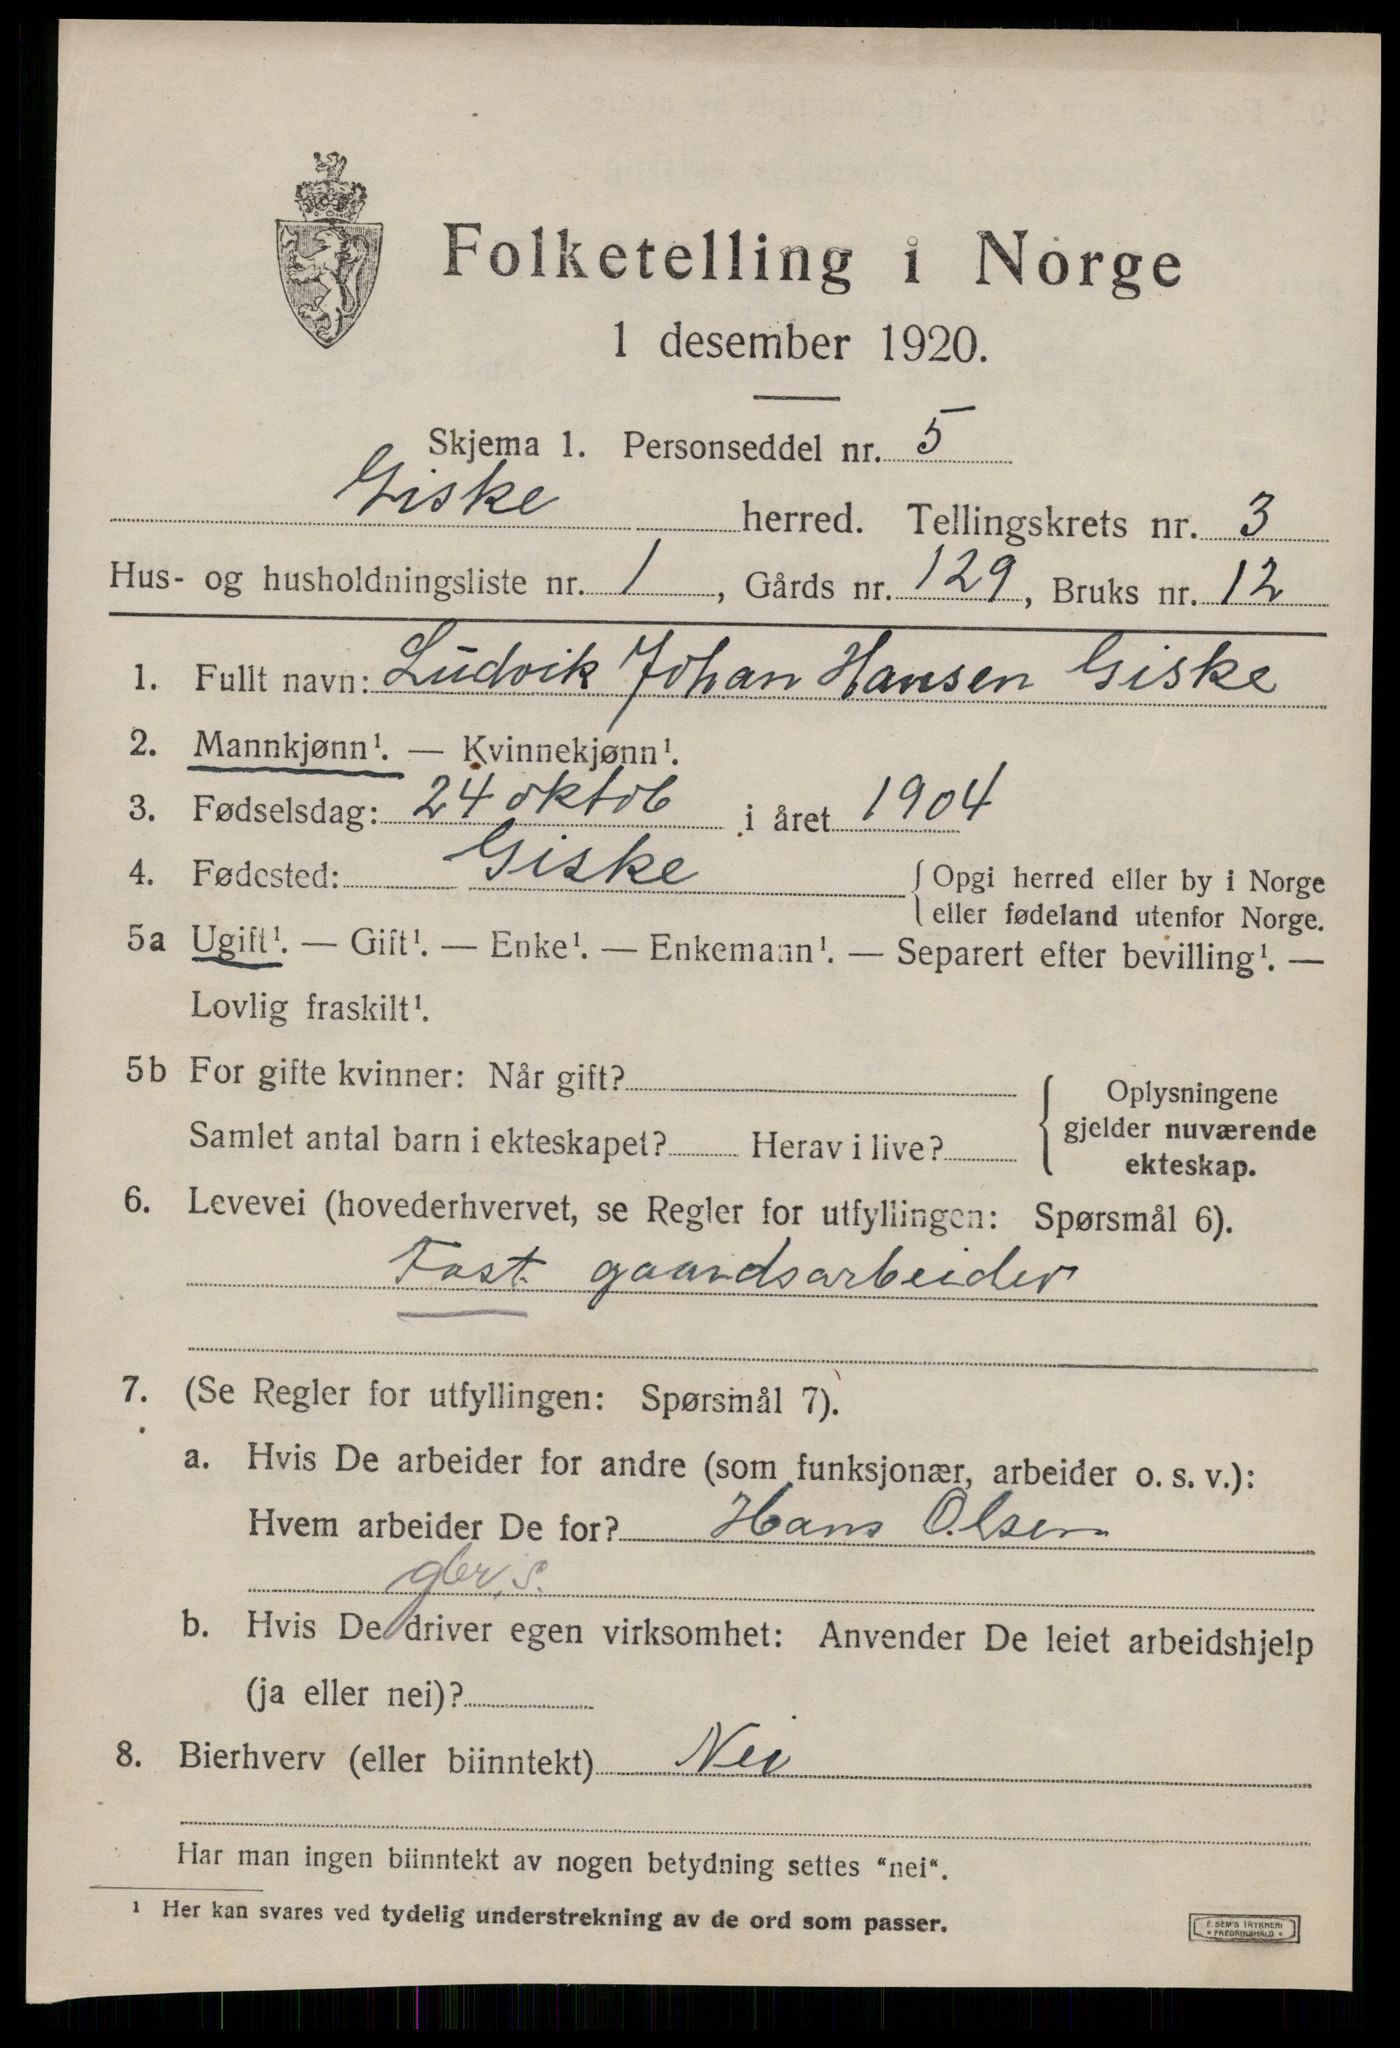 Folketelling i Norge
1 desember 1920.
Skjema 1. Personseddel nr. 5
Giske herred. Tellingskrets nr. 3
Hus- og husholdningsliste nr. 1, Gårds nr. 129, Bruks nr. 12
1. Fullt navn: Ludvik Johan Hansen Giske
2. Mannkjønn¹. — Kvinnekjønn¹.
3. Fødselsdag: 24 oktob i året 1904
4. Fødested: Giske { Opgi herred eller by i Norge
eller fødeland utenfor Norge.
5a Ugift¹. — Gift¹. — Enke¹. — Enkemann¹. — Separert efter bevilling¹. —
Lovlig fraskilt¹.
5b For gifte kvinner: Når gift?
Samlet antal barn i ekteskapet? Herav i live?
{ Oplysningene
gjelder nuværende
ekteskap.
6. Levevei (hovederhvervet, se Regler for utfyllingen: Spørsmål 6).
Fast gaardsarbeider
7. (Se Regler for utfyllingen: Spørsmål 7).
a. Hvis De arbeider for andre (som funksjonær, arbeider o. s. v.):
Hvem arbeider De for? Hans Olsen
gbr. s.
b. Hvis De driver egen virksomhet: Anvender De leiet arbeidshjelp
(ja eller nei)?
8. Bierhverv (eller biinntekt) Nei
Har man ingen biinntekt av nogen betydning settes "nei".
¹ Her kan svares ved tydelig understrekning av de ord som passer.
E. SEM'S TRYKKERI
* FREDRIKSHALD *